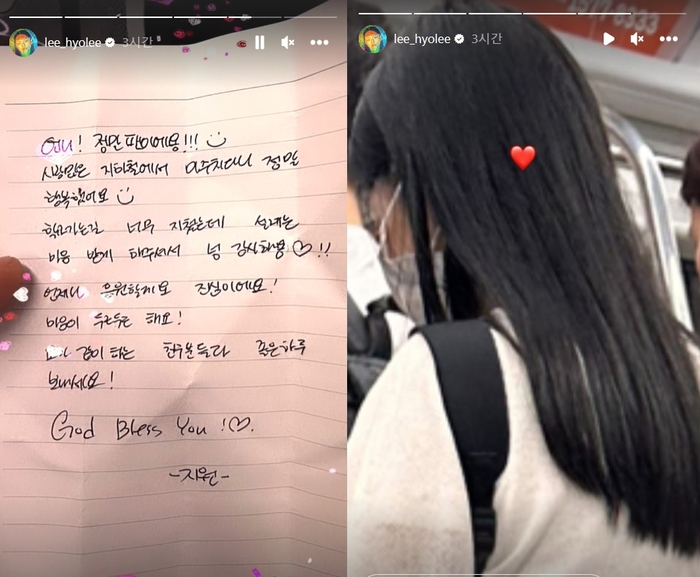 lee_hyolee 3시간
언니! 정말 팬이에요!!!
지하철에서 마주치다니 정말
행복했어요
학교가는길 너무 지쳤는데 설레는
마음 받게 해주셔서 넘 감사해용♡!!
언제나 응원할게요 진심이에요!
마음이 두근두근 해요!
같이 타는 친구분들과 좋은하루
보내세요!
God Bless You !♡.
-지원-
lee_hyolee 3시간